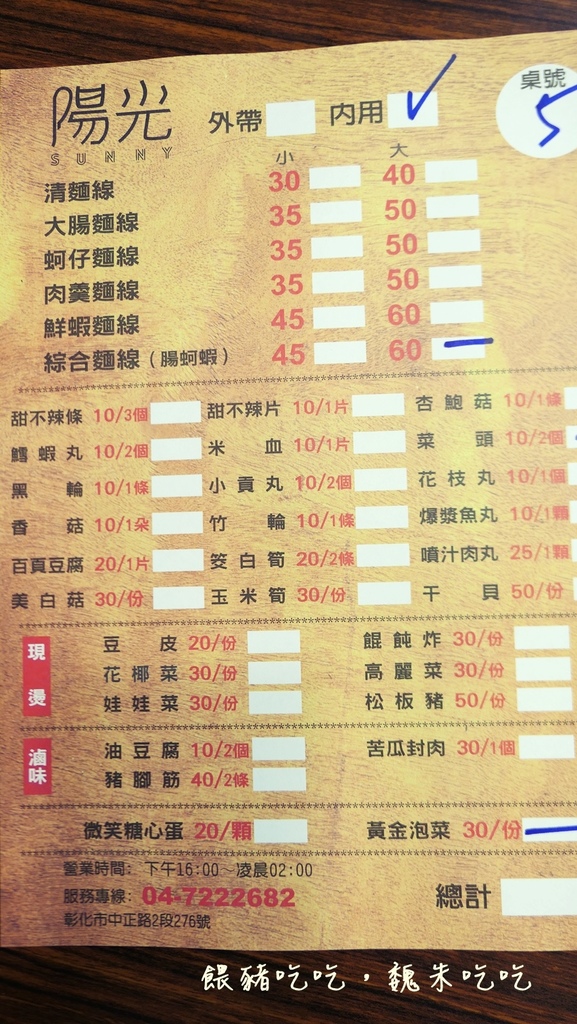 陽光
SUNNY
外帶 內用 桌號 5
小 大
清麵線 30 40
大腸麵線 35 50
蚵仔麵線 35 50
肉羹麵線 35 50
鮮蝦麵線 45 60
綜合麵線(腸蚵蝦) 45 60
甜不辣條 10/3個 甜不辣片 10/1片 杏鮑菇 10/1條
鱈蝦丸 10/2個 米血 10/1片 菜頭 10/2個
黑輪 10/1條 小貢丸 10/2個 花枝丸 10/1個
香菇 10/1朵 竹輪 10/1條 爆漿魚丸 10/1顆
百頁豆腐 20/1片 筊白筍 20/2條 噴汁肉丸 25/1顆
美白菇 30/份 玉米筍 30/份 干貝 50/份
現燙
豆皮 20/份 餛飩炸 30/份
花椰菜 30/份 高麗菜 30/份
娃娃菜 30/份 松板豬 50/份
滷味
油豆腐 10/2個 苦瓜封肉 30/1個
豬腳筋 40/2條
微笑糖心蛋 20/顆 黃金泡菜 30/份
營業時間: 下午16:00~凌晨02:00
服務專線: 04-7222682
彰化市中正路2段276號
總計
餵豬吃吃,魏朱吃吃